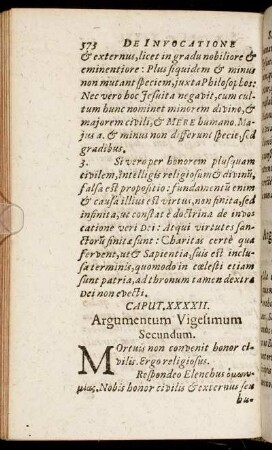 573 DE INVOCATIONE
& externus, licet in gradu nobiliore &
eminentiore: Plus siquidem & minus
non mutant speciem, juxta Philosophos:
Nec vero hoc Jesuita negabit, cum cul-
tum hunc nominet minorem divino, &
majorem civili, & MERE humano. Ma-
jus a. & minus non differunt specie, sed
gradibus.
3. Si vero per honorem plusquam
civilem, intelligis religiosum & divinũ,
falsa est propositio: fundamentũ enim
& causa illius est virtus, non finita, sed
infinita, ut constat è doctrina de invo-
catione veri Dei: Atqui virtutes san-
ctorũ finitæ sunt: Charitas certè qua
fervent, ut & Sapientia, suis est inclu-
sa terminis, quomodo in cœlesti etiam
sunt patria, ad thronum tamen dextræ
Dei non evecti.
CAPUT. XXXXII.
Argumentum Vigesimum
Secundum.
MOrtuis non convenit honor ci-
vilis. Ergo religiosus.
Respondeo Elenchus ὁμωνυ-
μίας. Nobis honor civilis & externus seu
hu-